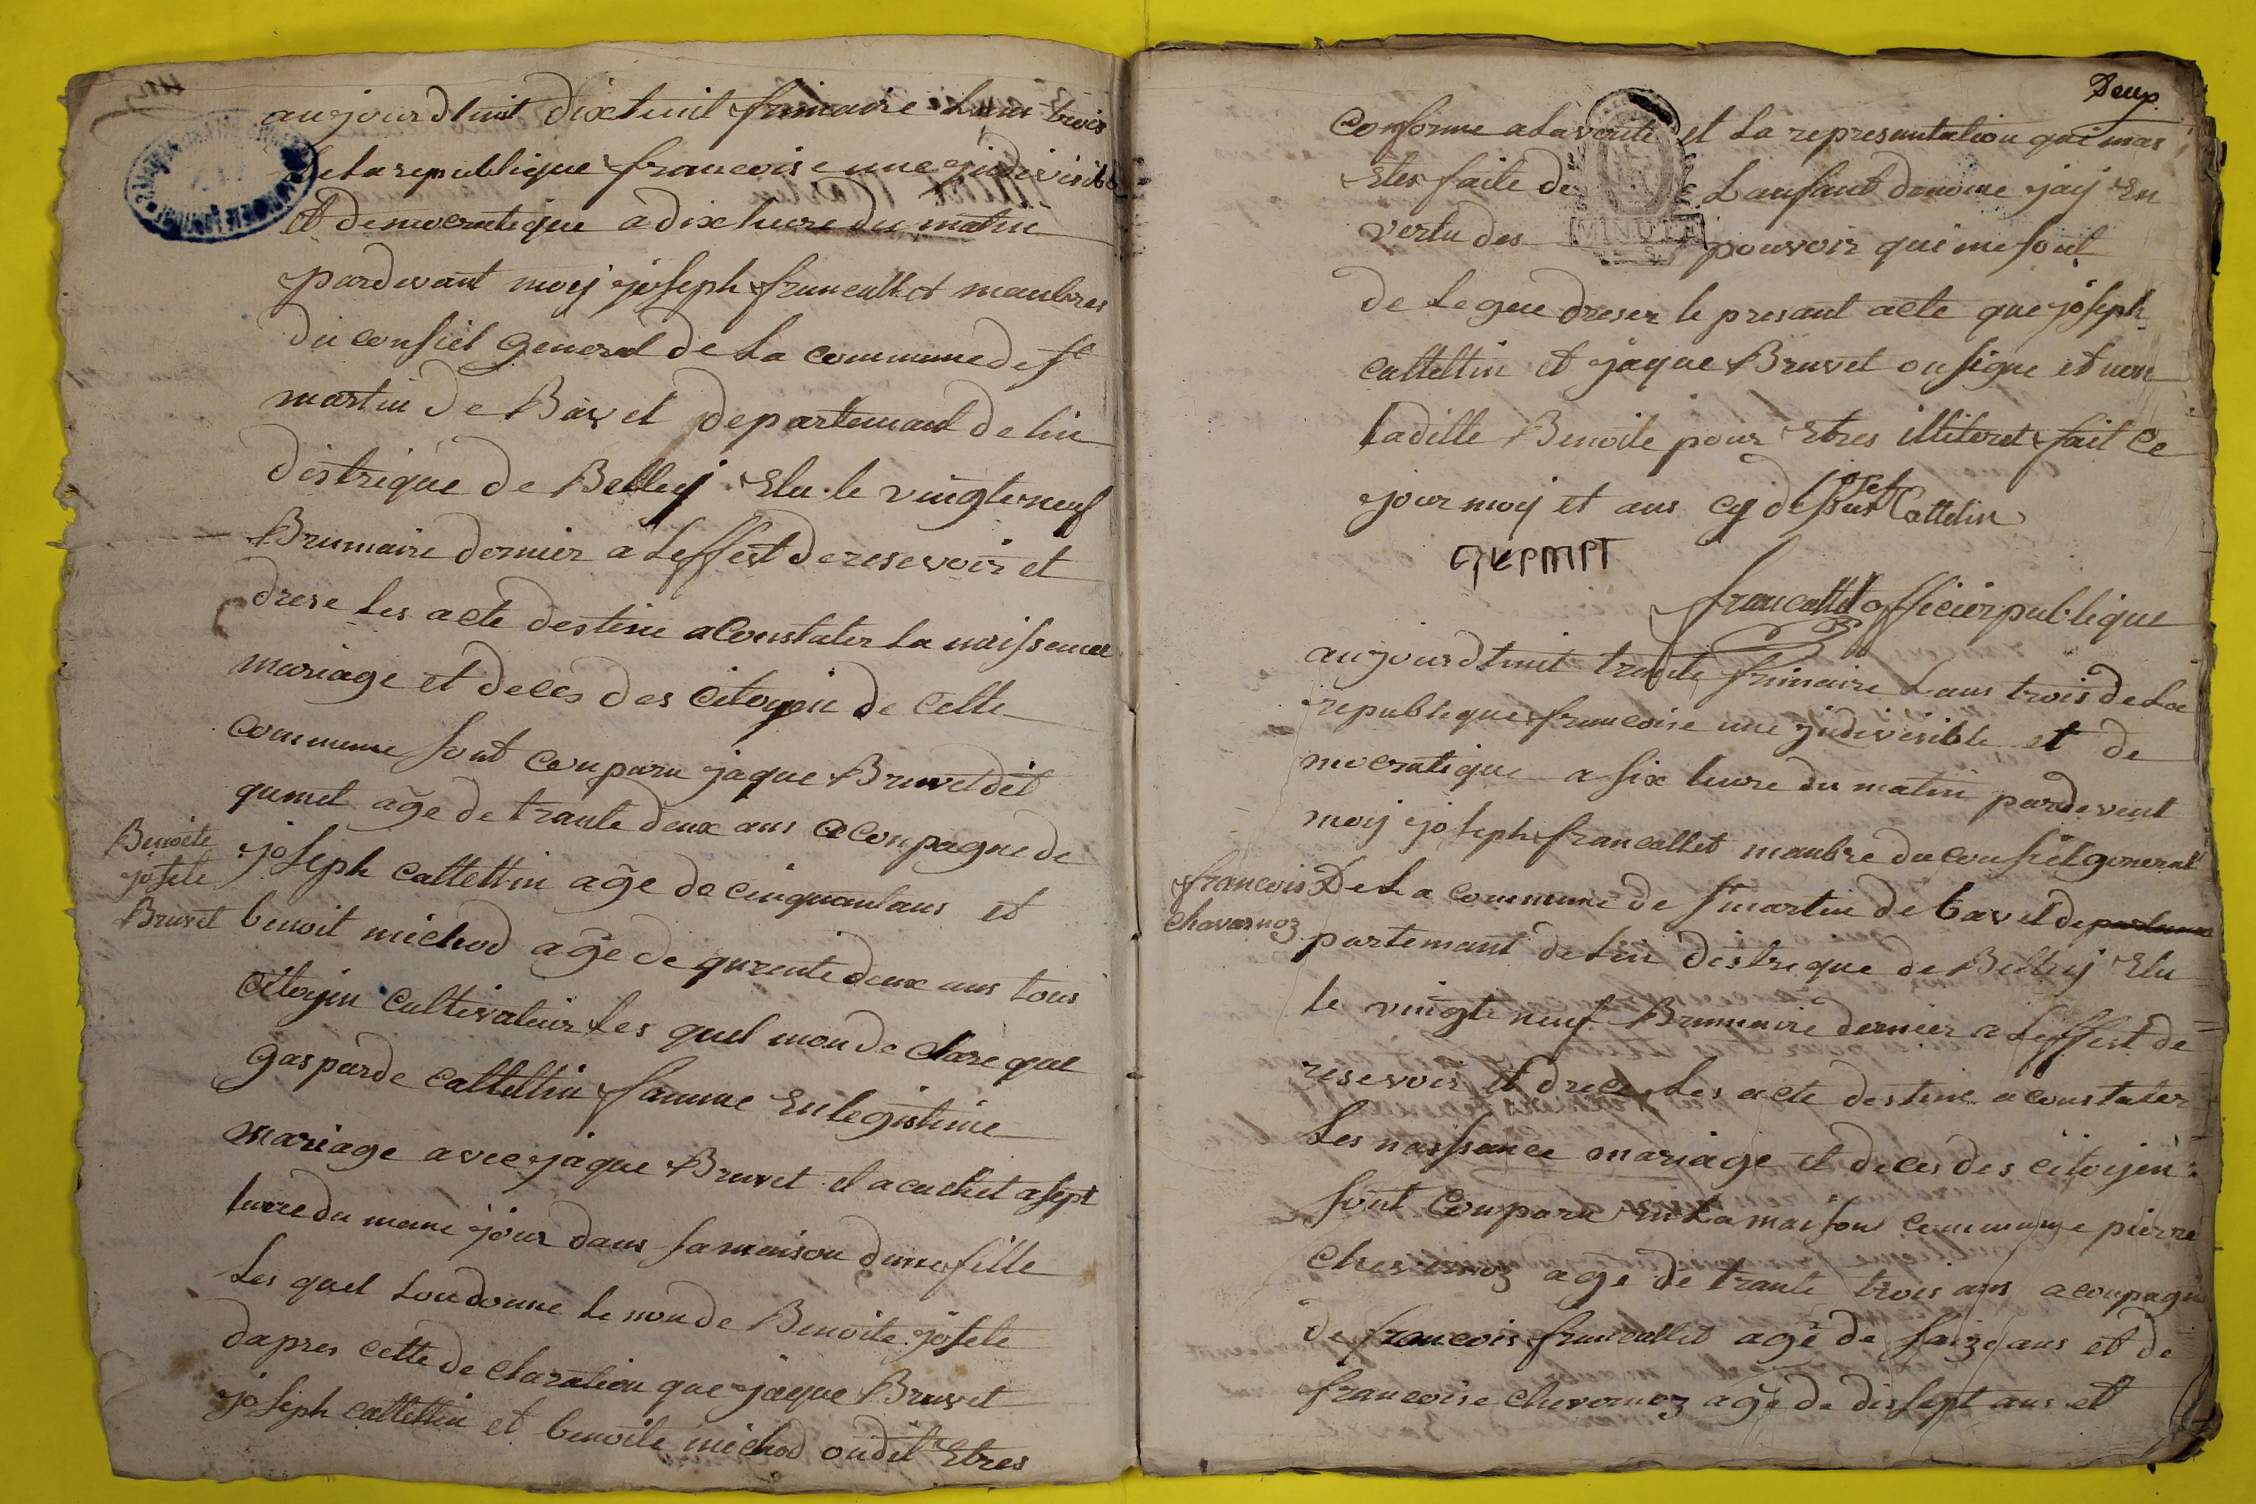 aujourdhuit dixhuit frimaire Lans trois
de La republique francoise une jndivisible
et democratique a dix heure du matin
pardevant moy joseph francallet manbres
du consiel general de La commune de st
martin de Bavet departemant de Lin
distrique de Belley Elu le vingte neuf
Brumaire dernier a Leffest de resevoir et
drese Les acte destine a Constater La naissance
mariage et deces des Citoyin de Cette
commune sont Conparu jaque Bruvet dit
qumet age de trante deux ans aConpagne de
joseph Cattettin age de cinquant ans et
benoit michod age de qurente deux ans tous
Citoyin Cultivateur Les quel mon de Clare que
gasparde Cattettin famme En legistime
mariage avec jaque Bruvet et acuchet a sept
heure du meme jour dans sa maison dune fille
Les quel Lon donne Le non de Benoite josete
dapres Cette de Claration que jaque Bruvet
joseph Cattettin et benoite michod on dit Etres
Benoite
josete
Bruvet
Deux
Conforme a La verite et La representation qui mas
Etes faite de Lanfant denome jay En
vertu des pouvoir qui me sont
MINUTE
de Legue dreser le presant acte que joseph
Cattettin et jaque Bruvet on signe et non
Laditte Benoite pour Etres illiteret fait Ce
jour moy et ans cy dessus josef Cattelin
francallet officier publique
aujourdhuit trante frimaire Lans trois de La
republique francoise une jndivisible et de
mocratique a six heure du matin pardevent
moy joseph francallet manbre du consiel general
francois
Chavarnoz
De La commune de st martin de bavet departemant
partemant de Lin distrique de Belley Elu
le vingte neuf Brumaire dernier a Leffest de
resevoir et drece Les acte destine a constater
Les naissance mariage et deces des citoyen
sont Conparu En La maison commune pierre
Chevernoz age de trante trois ans aconpagne
de francois francallet age de saize ans et de
francoise Chevernoz age de dissept ans et